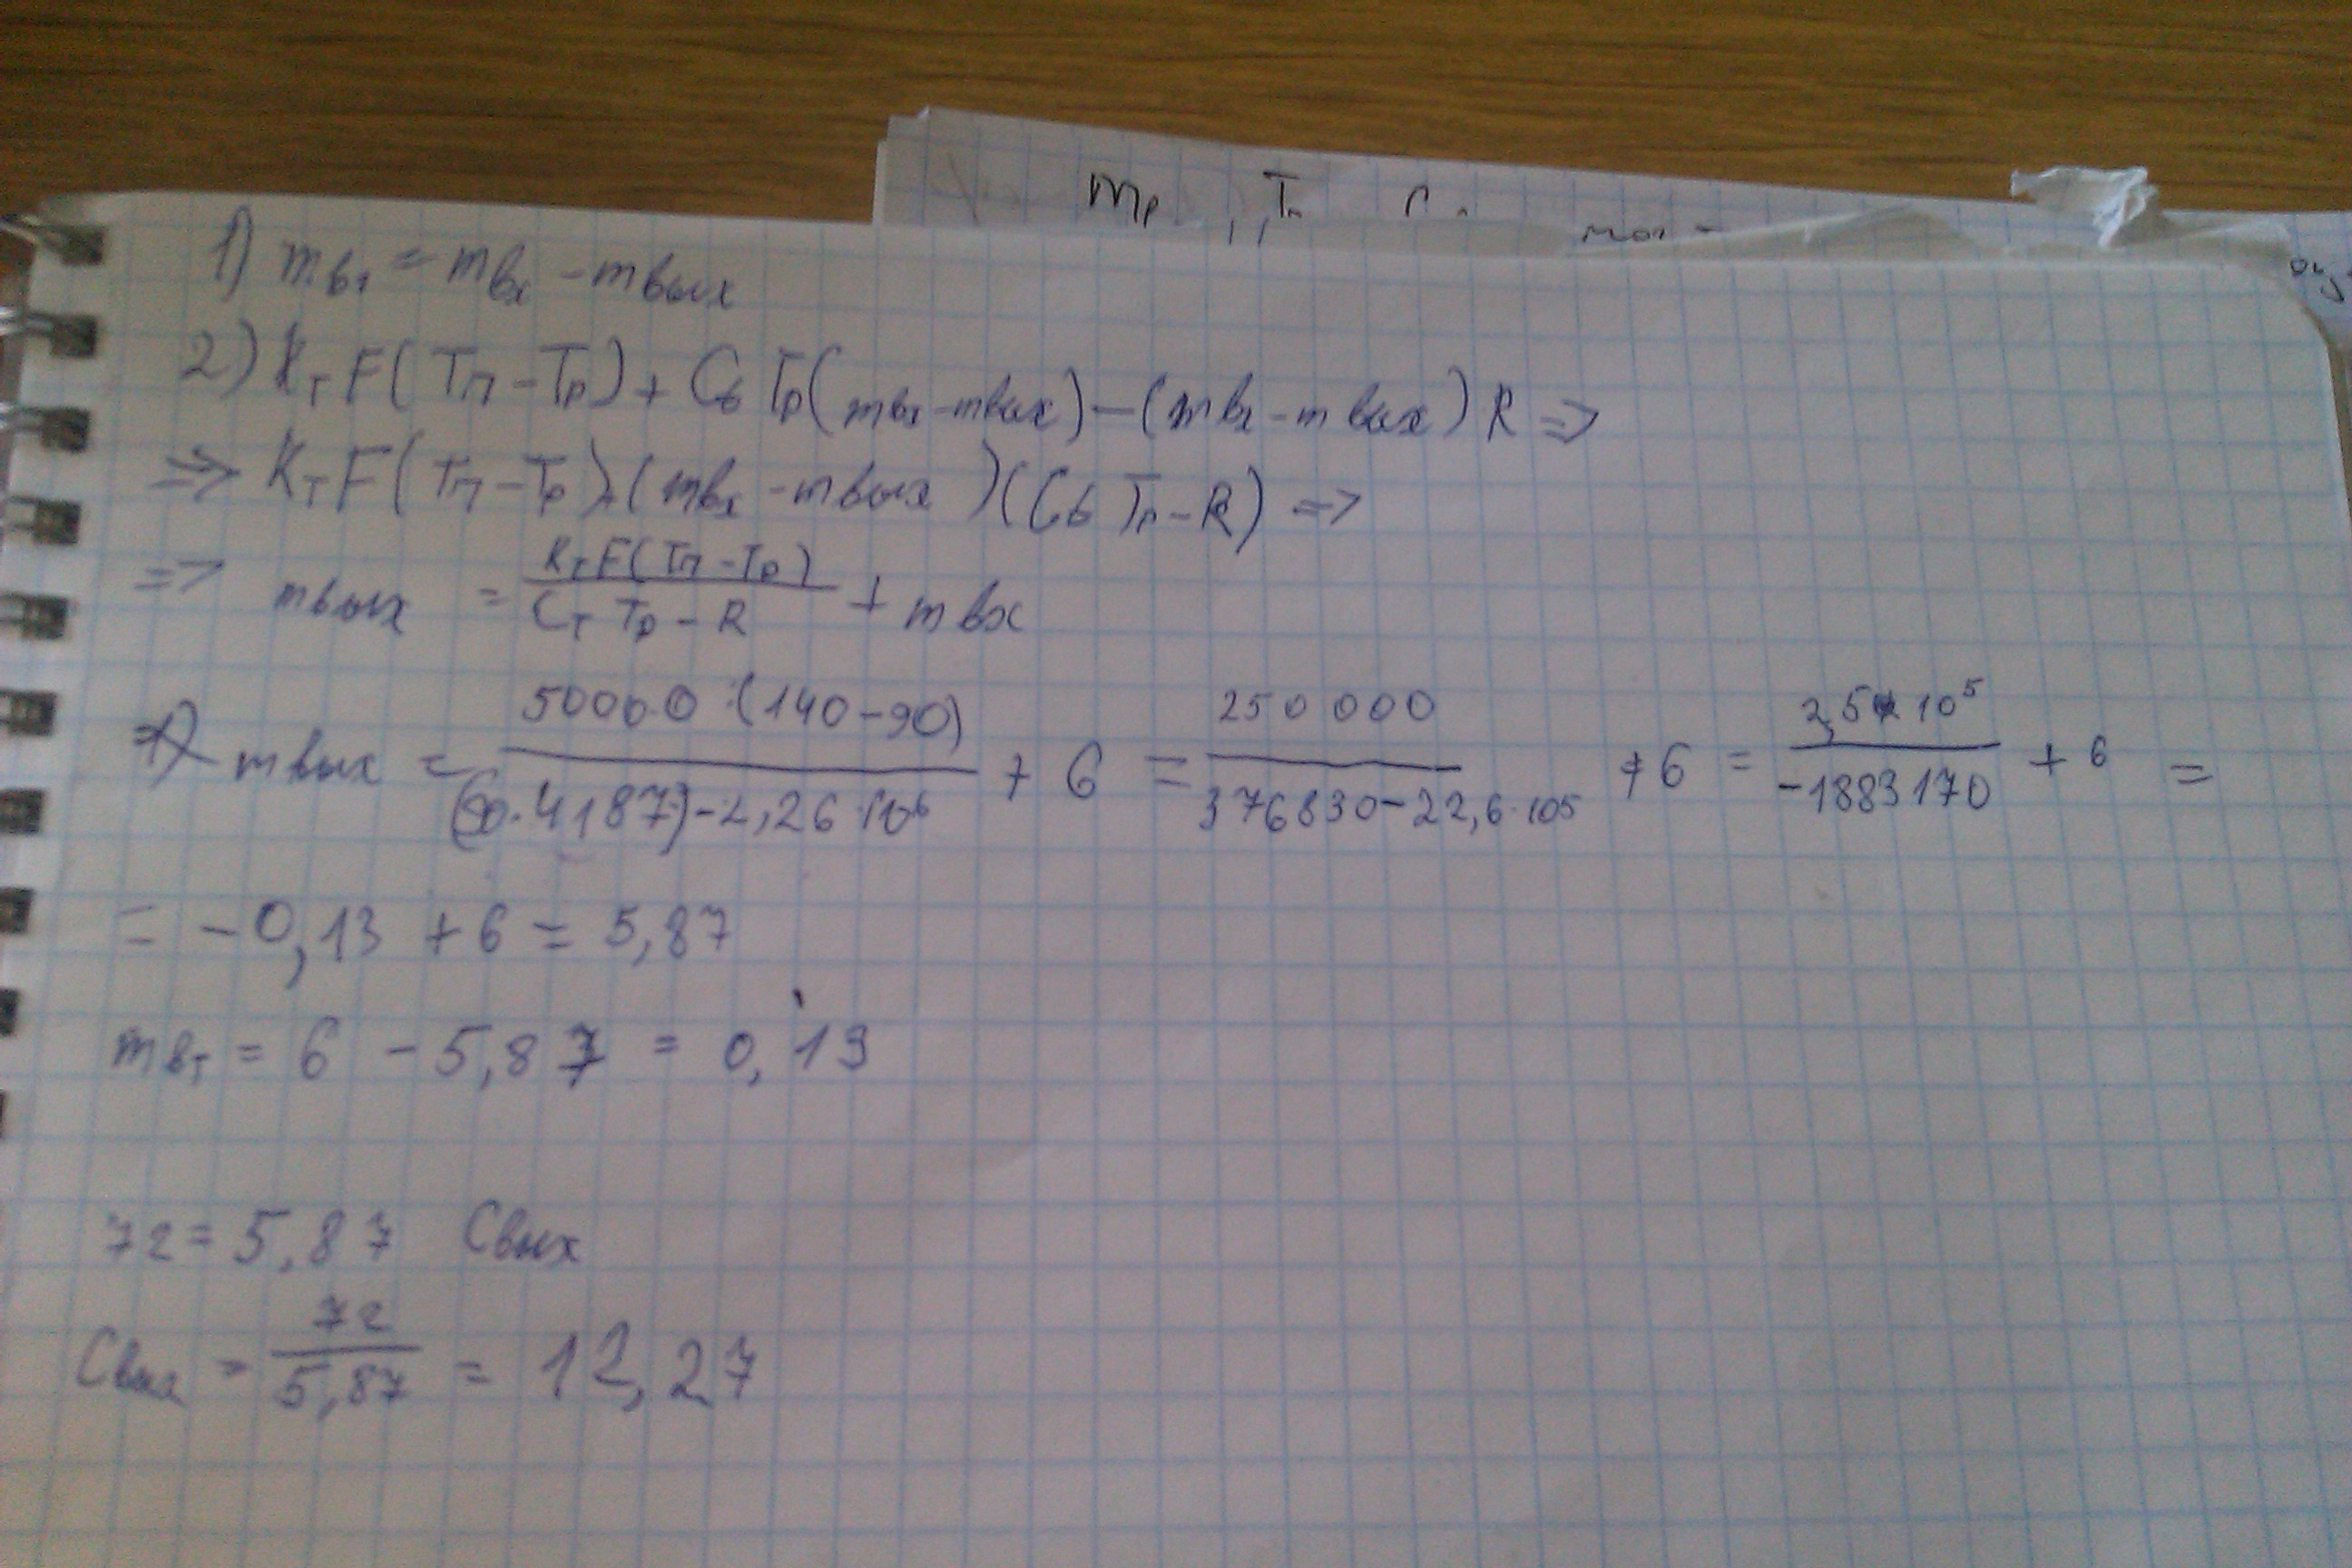 mр Tп
1) mвт = mвх - mвых
2) KтF(Tп - Tр) + Cб Tр(mвх - mвых) - (mвх - mвых) R =>
=> KтF(Tп - Tр)+(mвх - mвых)(Cб Tр - R) =>
=> mвых = KтF(Tп - Tр) / (Cт Tр - R) + mвх
=> mвых = 5000·0·(140-90) / ((90·4187)-2,26·10⁶) + 6 = 250000 / (376830-22,6·10⁵) + 6 = 2,5·10⁵ / (-1883170) + 6 =
= -0,13 + 6 = 5,87
mвт = 6 - 5,87 = 0,13
72 = 5,87 Cвых
Cвых = 72 / 5,87 = 12,27